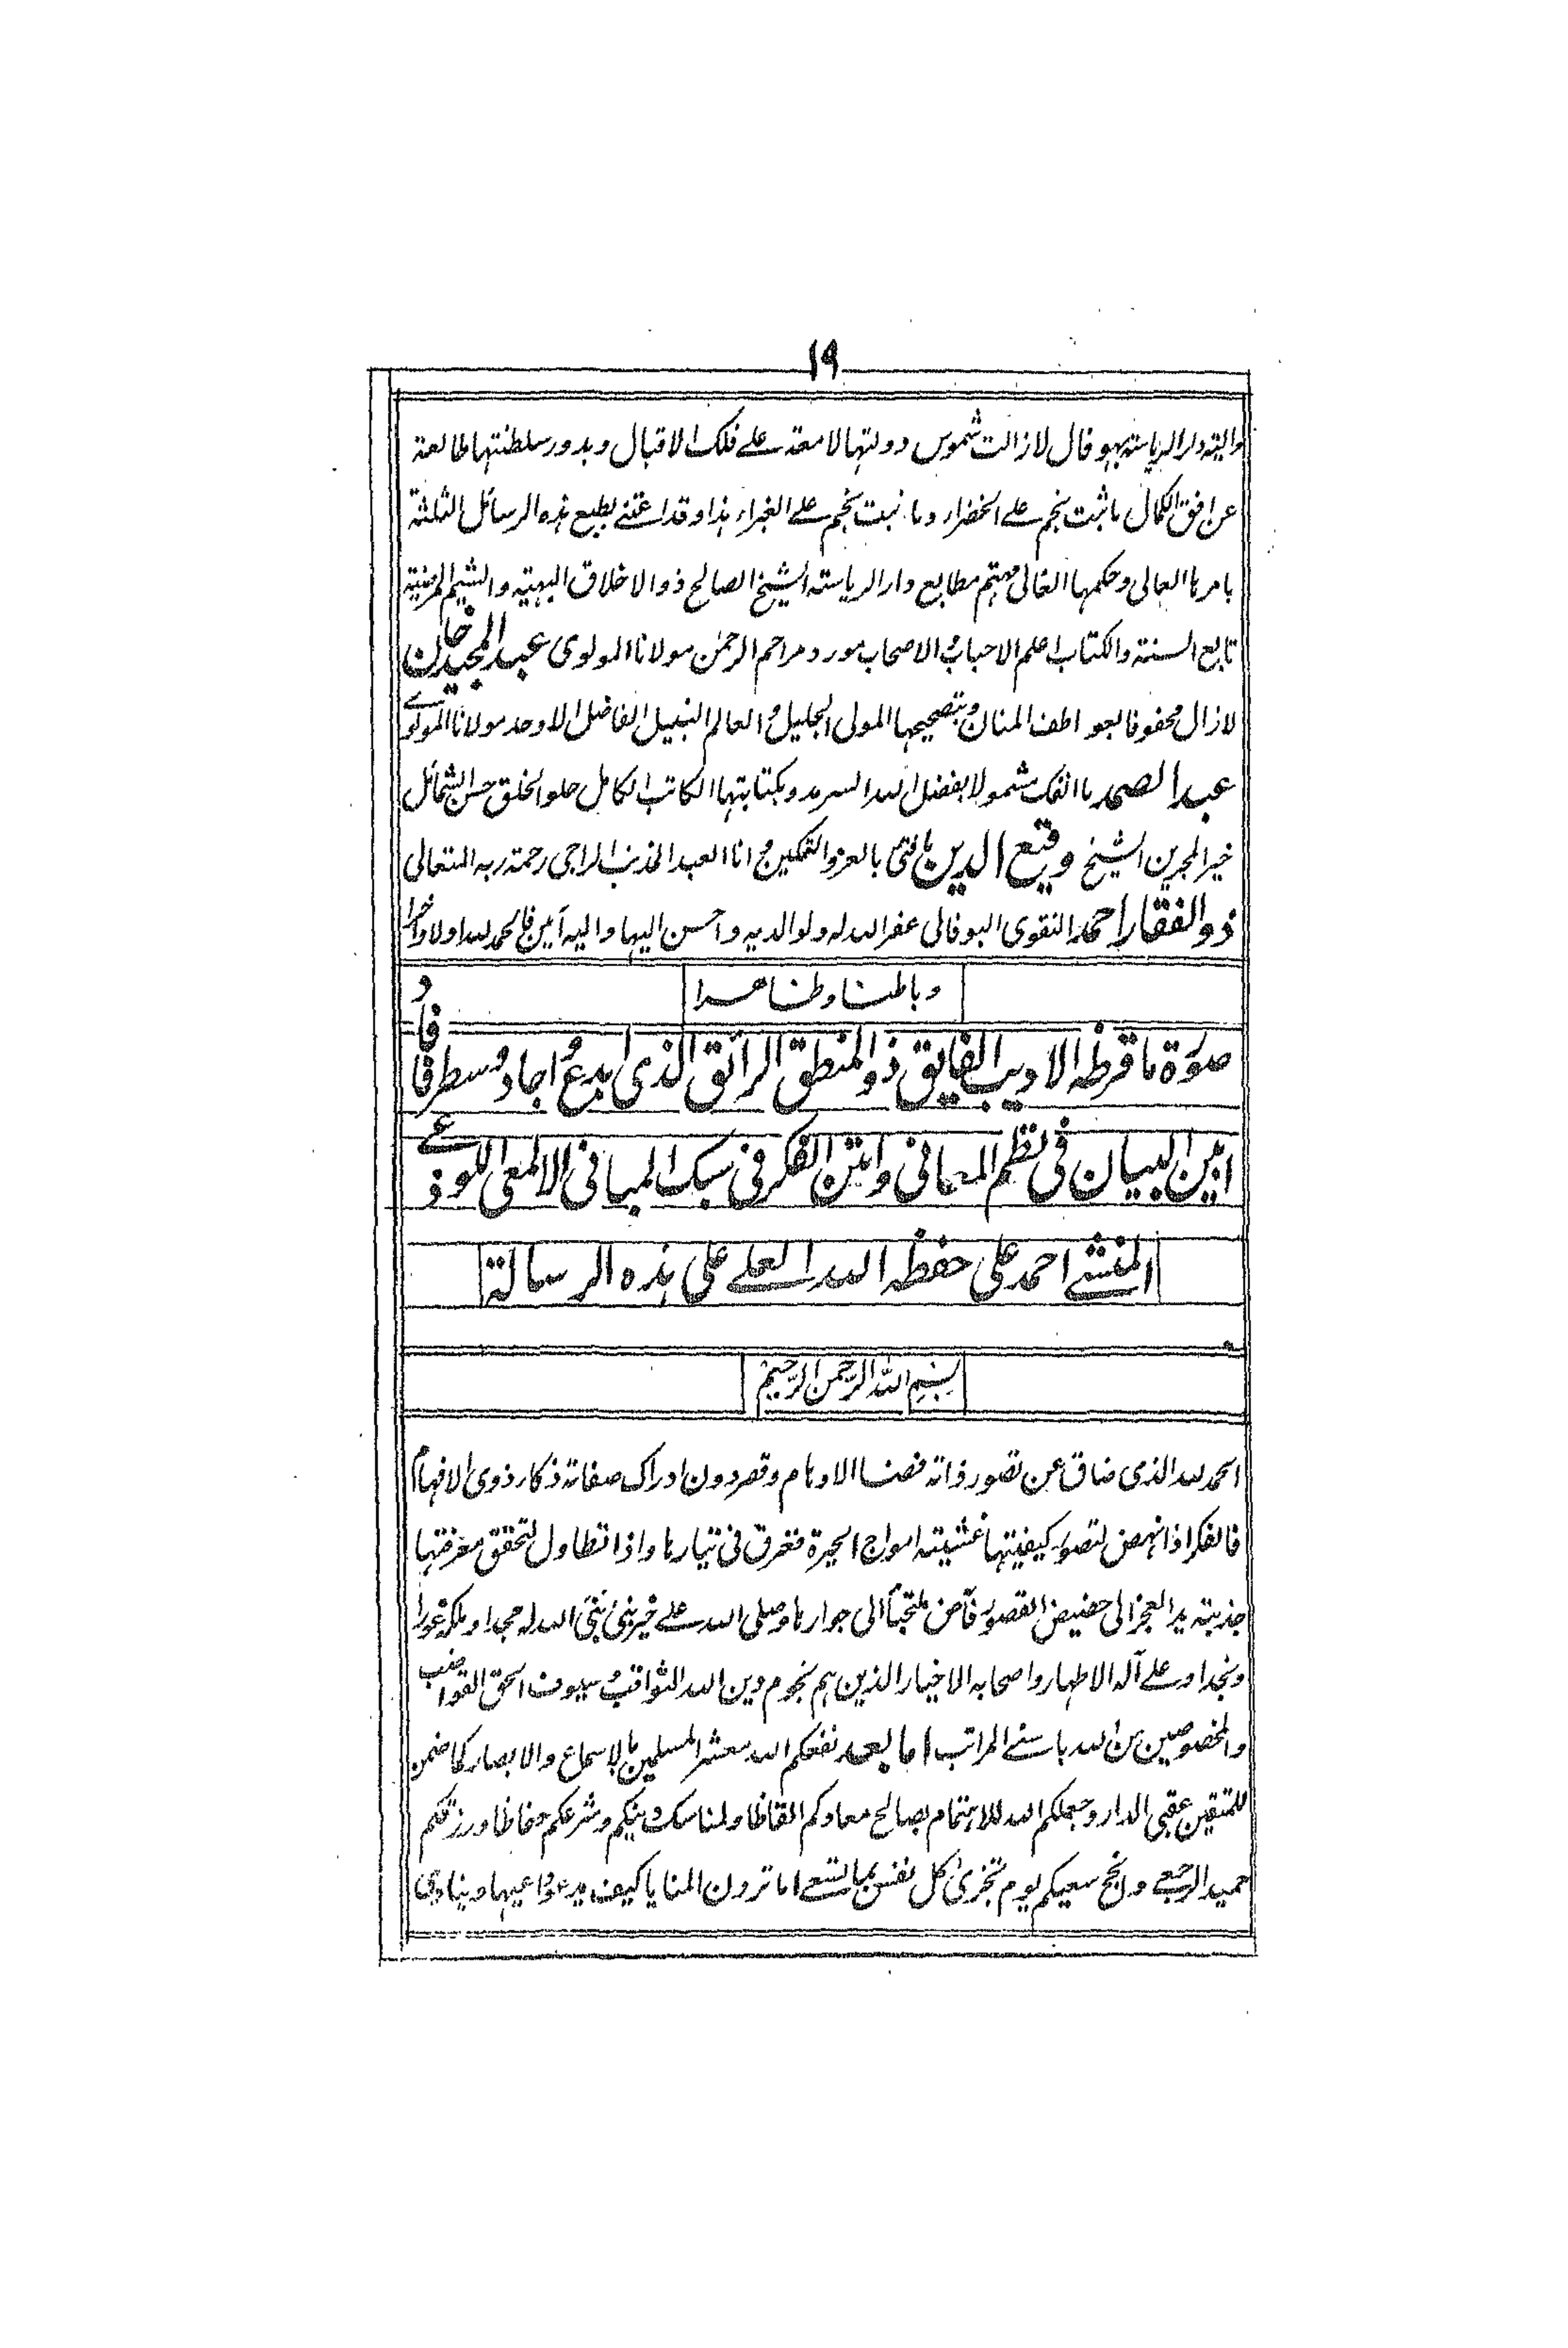 ١٩
والية دار الرياسة بهوفال لازالت شموس دولتها لامعة على فلك الاقبال وبدور سلطنتها طالعة
عن افق الكمال ما ثبت نجم على الخضراء وما نبت نجم على الغبراء هذا وقد اعتنى بطبع هذه الرسائل الثلثة
بامرها العالى وحكمها الغالى مهتم مطابع دار الرياسة الشيخ الصالح ذو الاخلاق البهية والشيم المرضية
تابع السنة والكتاب اعلم الاحباب والاصحاب مورد مراحم الرحمن مولانا المولوى عبد المجيد خان
لازال محفوفا بعواطف المنان وبتصحيحها المولى الجليل والعالم النبيل الفاضل الاوحد مولانا المولوے
عبد الصمد ما انفك مشمولا بفضل الله السرمد وبكتابتها الكاتب الكامل حلو الخلق حسن الشمائل
خير المجربن الشيخ وقيع الدين مافتئ بالعز والتمكين وانا العبد المذنب الراجى رحمة ربه المتعالى
ذو الفقار احمد النقوى البوفالى عفر الله له ولوالديه واحسن اليها واليه آمين فالحمد لله اولا واخرا
وباطنا وظاهرا
صورة ما قرظه الاديب الفايق ذو المنطق الرائق الذى ابدع واجاد وسطر فافاد
ابين البيان فى نظم المعانى واتقن الفكر فى سبك المبانى الالمعى اللوذعے
المنشے احمد على حفظه الله العلے على هذه الرسالة
بسم الله الرحمن الرحيم
الحمد لله الذى ضاق عن تصور ذاته فضا الاوهام وقصر دون ادراك صفاته ذكار ذوى الافهام
فالفكر اذا نهض لتصور كيفيتها غشيته امواج الحيرة فغرق فى تيارها واذا تطاول لتحقق معرفتها
جذبته يد العجز الى حضيض القصور فآض ملتجأ الى جوارها وصلى الله على خير نبى بنى الله له مجدا وملكه غورا
ونجدا وعلى آله الاطهار واصحابه الاخيار الذين هم نجوم دين الله الثواقب وسيوف الحق القواضب
والمخصوصين من الله باسنے المراتب اما بعد نفعكم الله معشر المسلمين بالاسماع والابصار كما ضمن
للمتقين عقبى الدار وجعلكم الله للاهتمام بصالح معادكم القاظا ولمناسك دينكم وشرعكم حفاظا ورزقكم
حميد الرجعے ونجح سعيكم يوم تجزى كل نفس بما تسعے اما ترون المنايا كيف يدعو داعيها وينادى